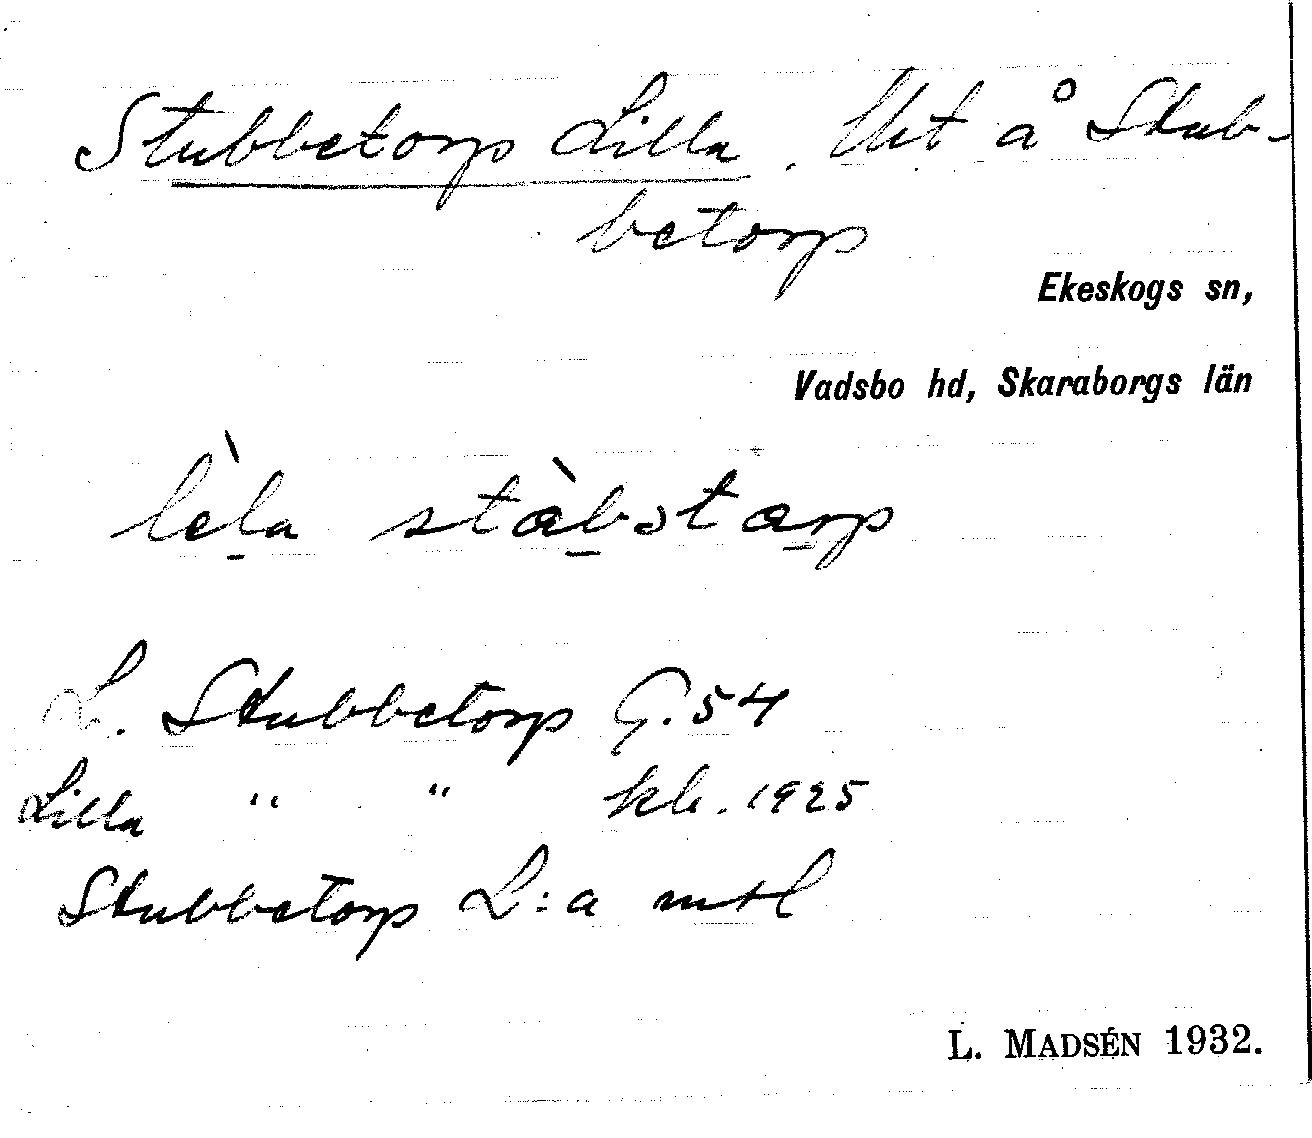 Stubbetorp Lilla. Urt å Stub-
betorp
Ekeskogs sn,
Vadsbo hd, Skaraborgs län
lèla stàbɔtarp
L. Stubbetorp G. 54
Lilla " " kb. 1925
Stubbetorp L:a mtl
L. MADSÉN 1932.